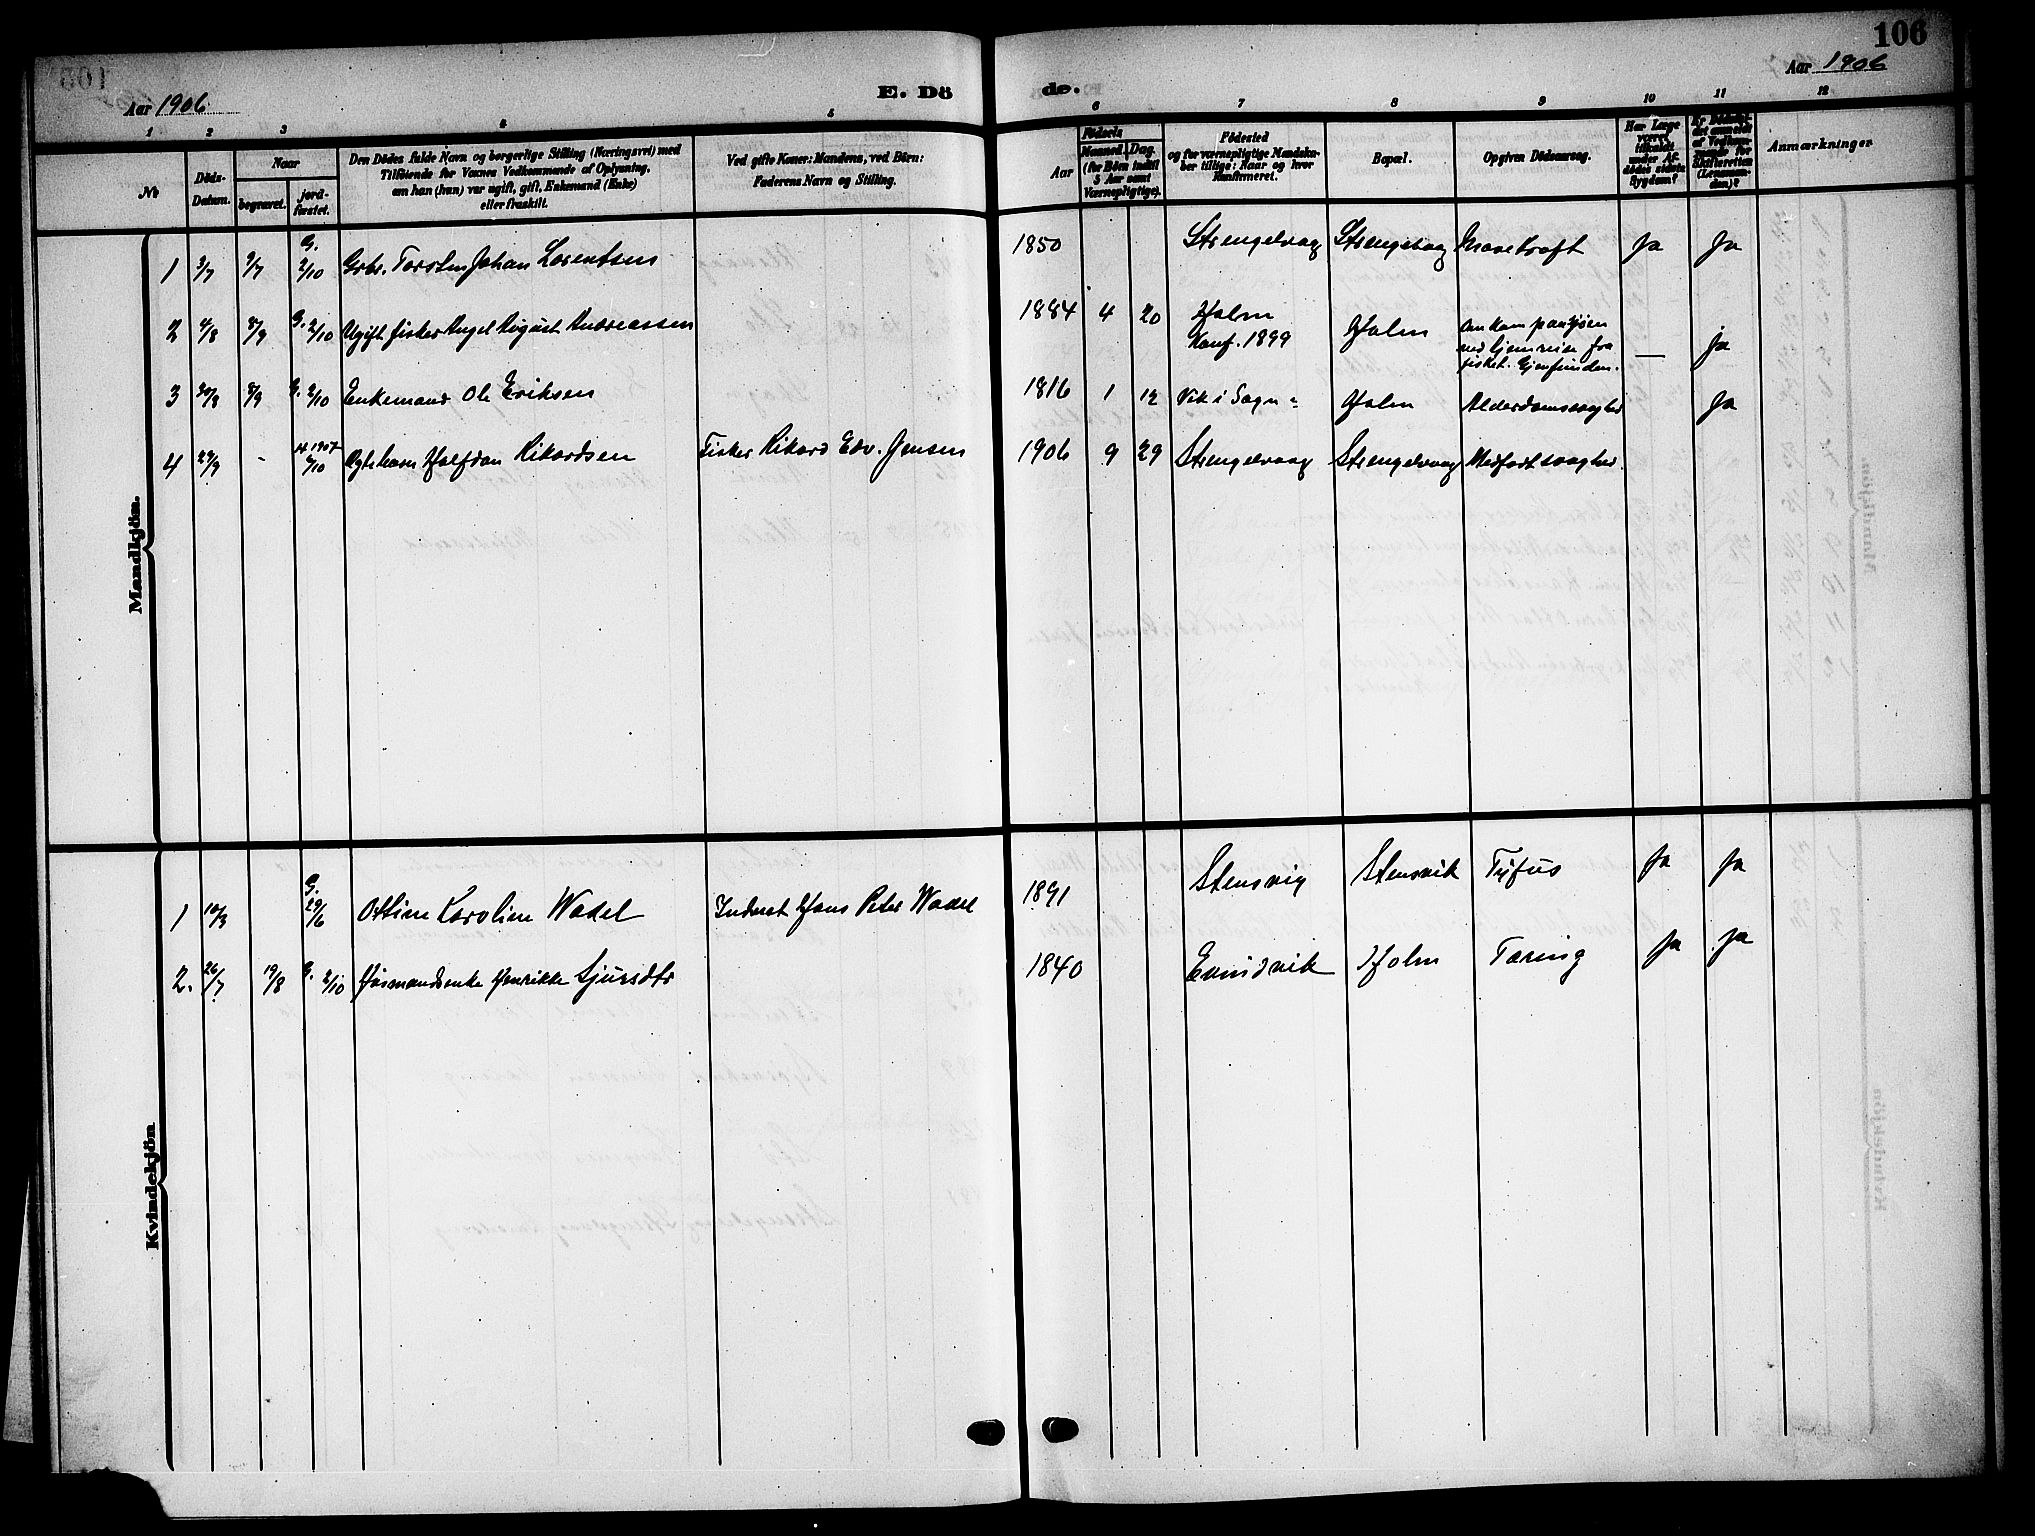 106
Aar 1906
E. Dö
de.
Aar 1906
1 2 3 4 5 6 7 8 9 10 11 12
No
Döds-Datum.
Naar
begravet.
jord-fæstet.
Den Dödes fulde Navn og borgerlige Stilling (Næringsvei) med
Tilföiende for Voxnes Vedkommende af Oplysning,
om han (hun) var ugift, gift, Enkemand (Enke)
eller fraskilt.
Ved gifte Koner: Mandens, ved Börn:
Faderens Navn og Stilling.
Födsels
Aar
Maaned. Dag.
(for Börn indtil
5 Aar samt
Værnepligtige).
Födested
og for værnepligtige Mandska-
ber tillige: Naar og hvor
konfirmeret.
Bopæl.
Opgiven Dödsaarsag.
Har Læge
været
tilkaldt
under Af-
dödes sidste
Sygdom?
Er Dödsfal-
det anmeldt
af Vedkom-
mende for
Skifteretten
(Lensman-
den)?
Anmærkninger
Mandkjön.
1 3/7 9/7 G. 2/10 Grbr. Torsten Johan Lorentsen 1850 Strengelvaag Strengelvaag Mavekræft Ja Ja
2 4/8 8/9 G. 2/10 Ugift fisker Angel August Andreassen 1884 4 20 Holm Konf. 1899 Holm Omkom paa sjøen
ved hjemreise fra
fisket. Gjenfunden. — ja
3 30/8 8/9 G. 2/10 Enkemand Ole Eriksen 1816 1 12 Vik i Sogn Holm Alderdomssvaghed Ja
4 29/9 - 1907 6/10 Ægtebarn Halfdan Rikardsen Fisker Rikard Edv. Jensen 1906 9 29 Strengelvaag Strengelvaag Medfødt svaghed.
Kvindekjön
1 10/3 G. 29/6 Ottine Karoline Wadel Inderst Hans Peter Wadel 1891 Stensvig Stensvik Tyfus Ja Ja
2. 26/7 19/8 G. 2/10 Husmandsenke Henrikke Sjursdtr 1840 Evindvik Holm Tæring Ja Ja